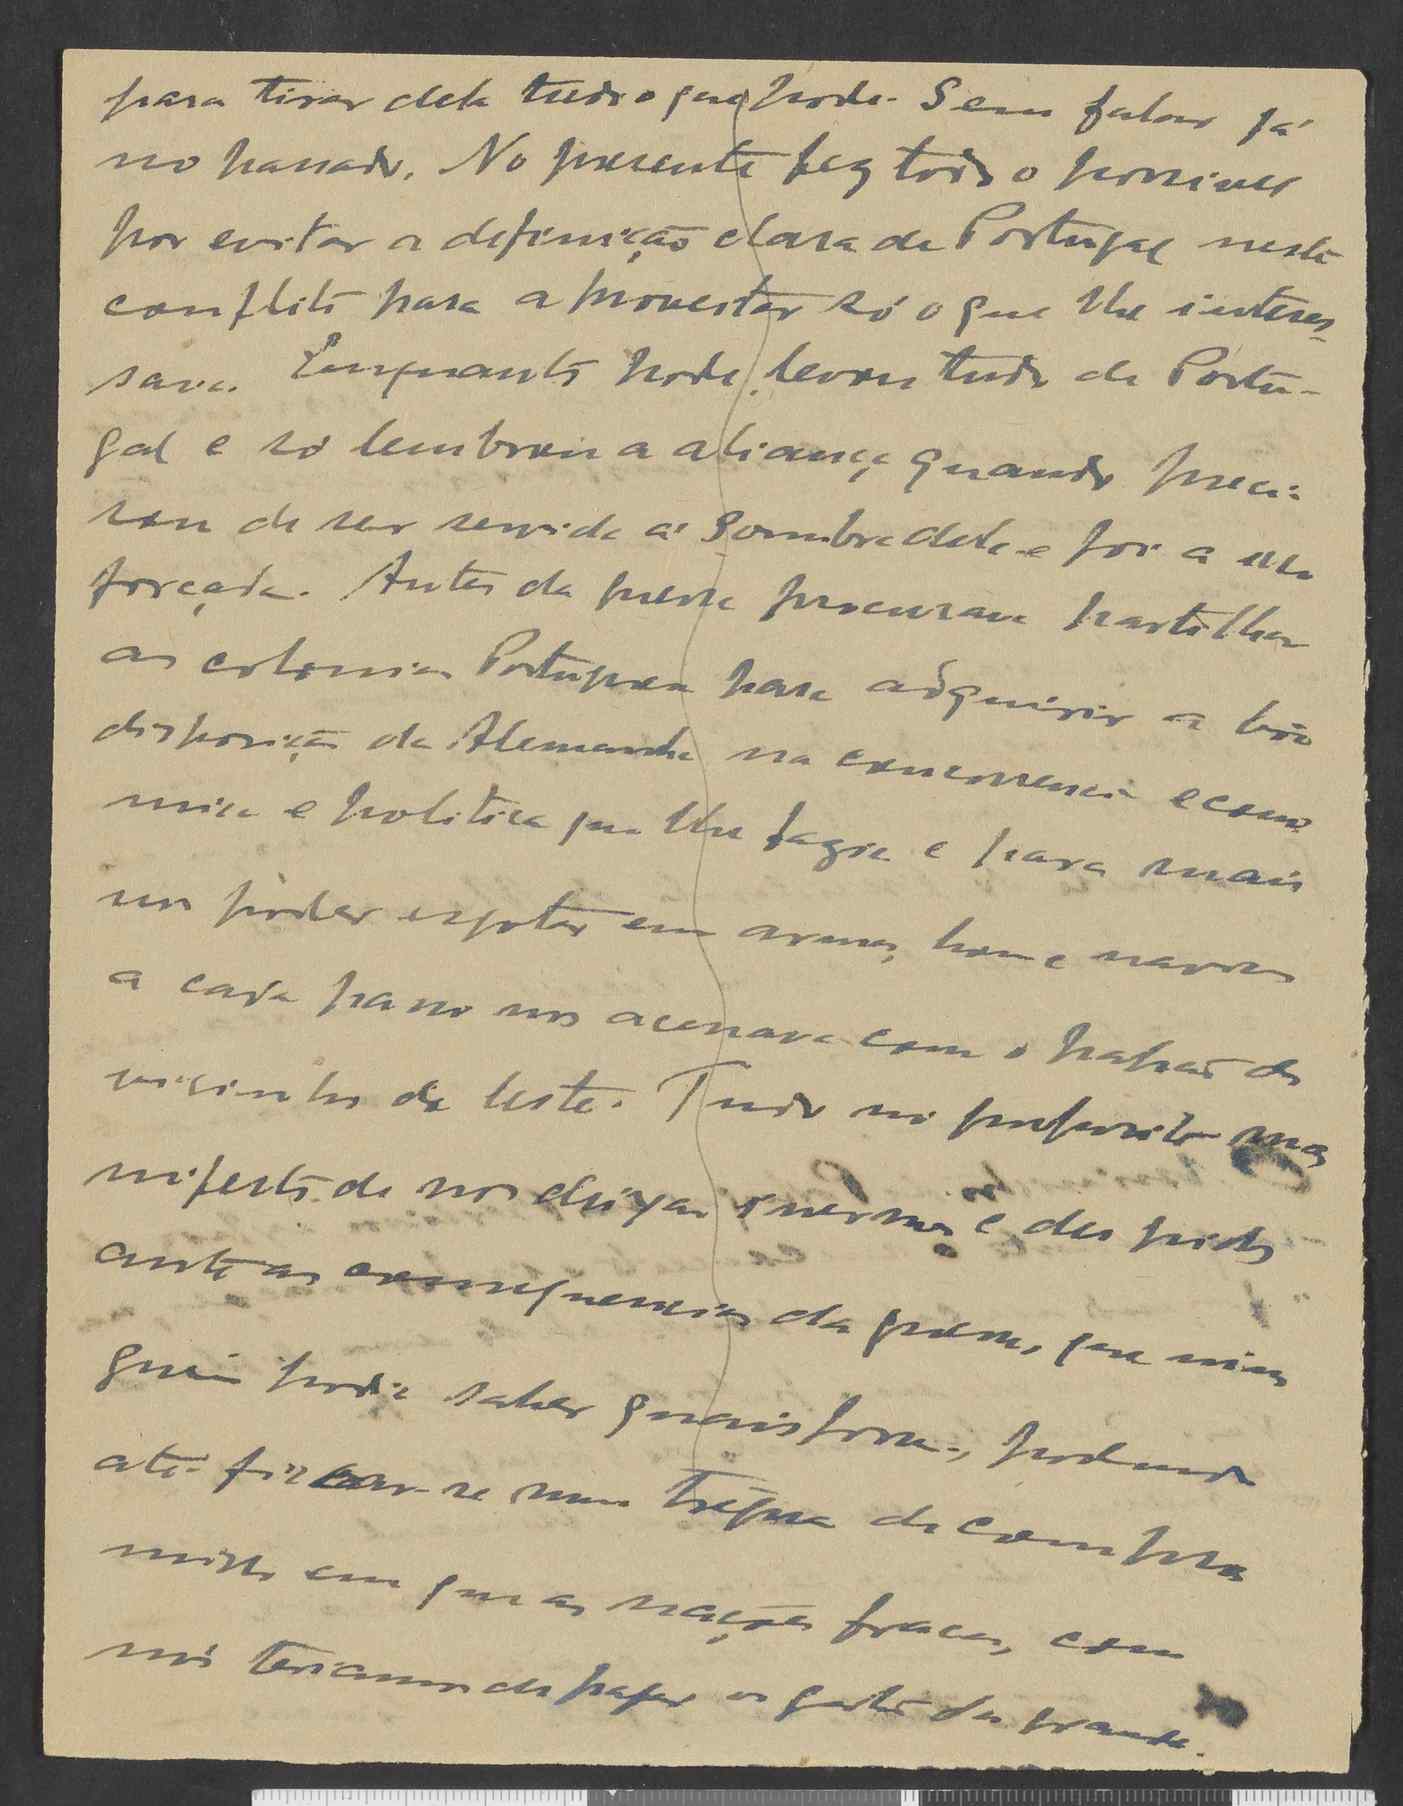 para tirar dela tudo o que pode. Sem falar já
no passado. No presente fez todo o possivel
por evitar a definição clara de Portugal neste
conflito para aproveitar só o que lhe interes-
sava. Emquanto pode, levou tudo de Portu-
gal e só lembrou a aliança quando preci-
sou de ser servida á sombra dela e foi a isso
forçada. Antes da guerra procurava partilhar
as colonias Portuguesas para adquirir a boa
disposição da Alemanha na concorrencia econo
mica e politica que lhe fazia e para mais
nos poder esgotar em armas, homens e navios
a cada passo nos acenava com o papão do
visinho de leste. Tudo no proposito ma
nifesto de nos deixar inermes e despidos
ante as consequencias da guerra, que nin
guem podia saber quais foram, podendo
até ficar-se numa tregua de compro
misso em que as nações fracas, como
nós teriamos de pagar os gastos da grande.